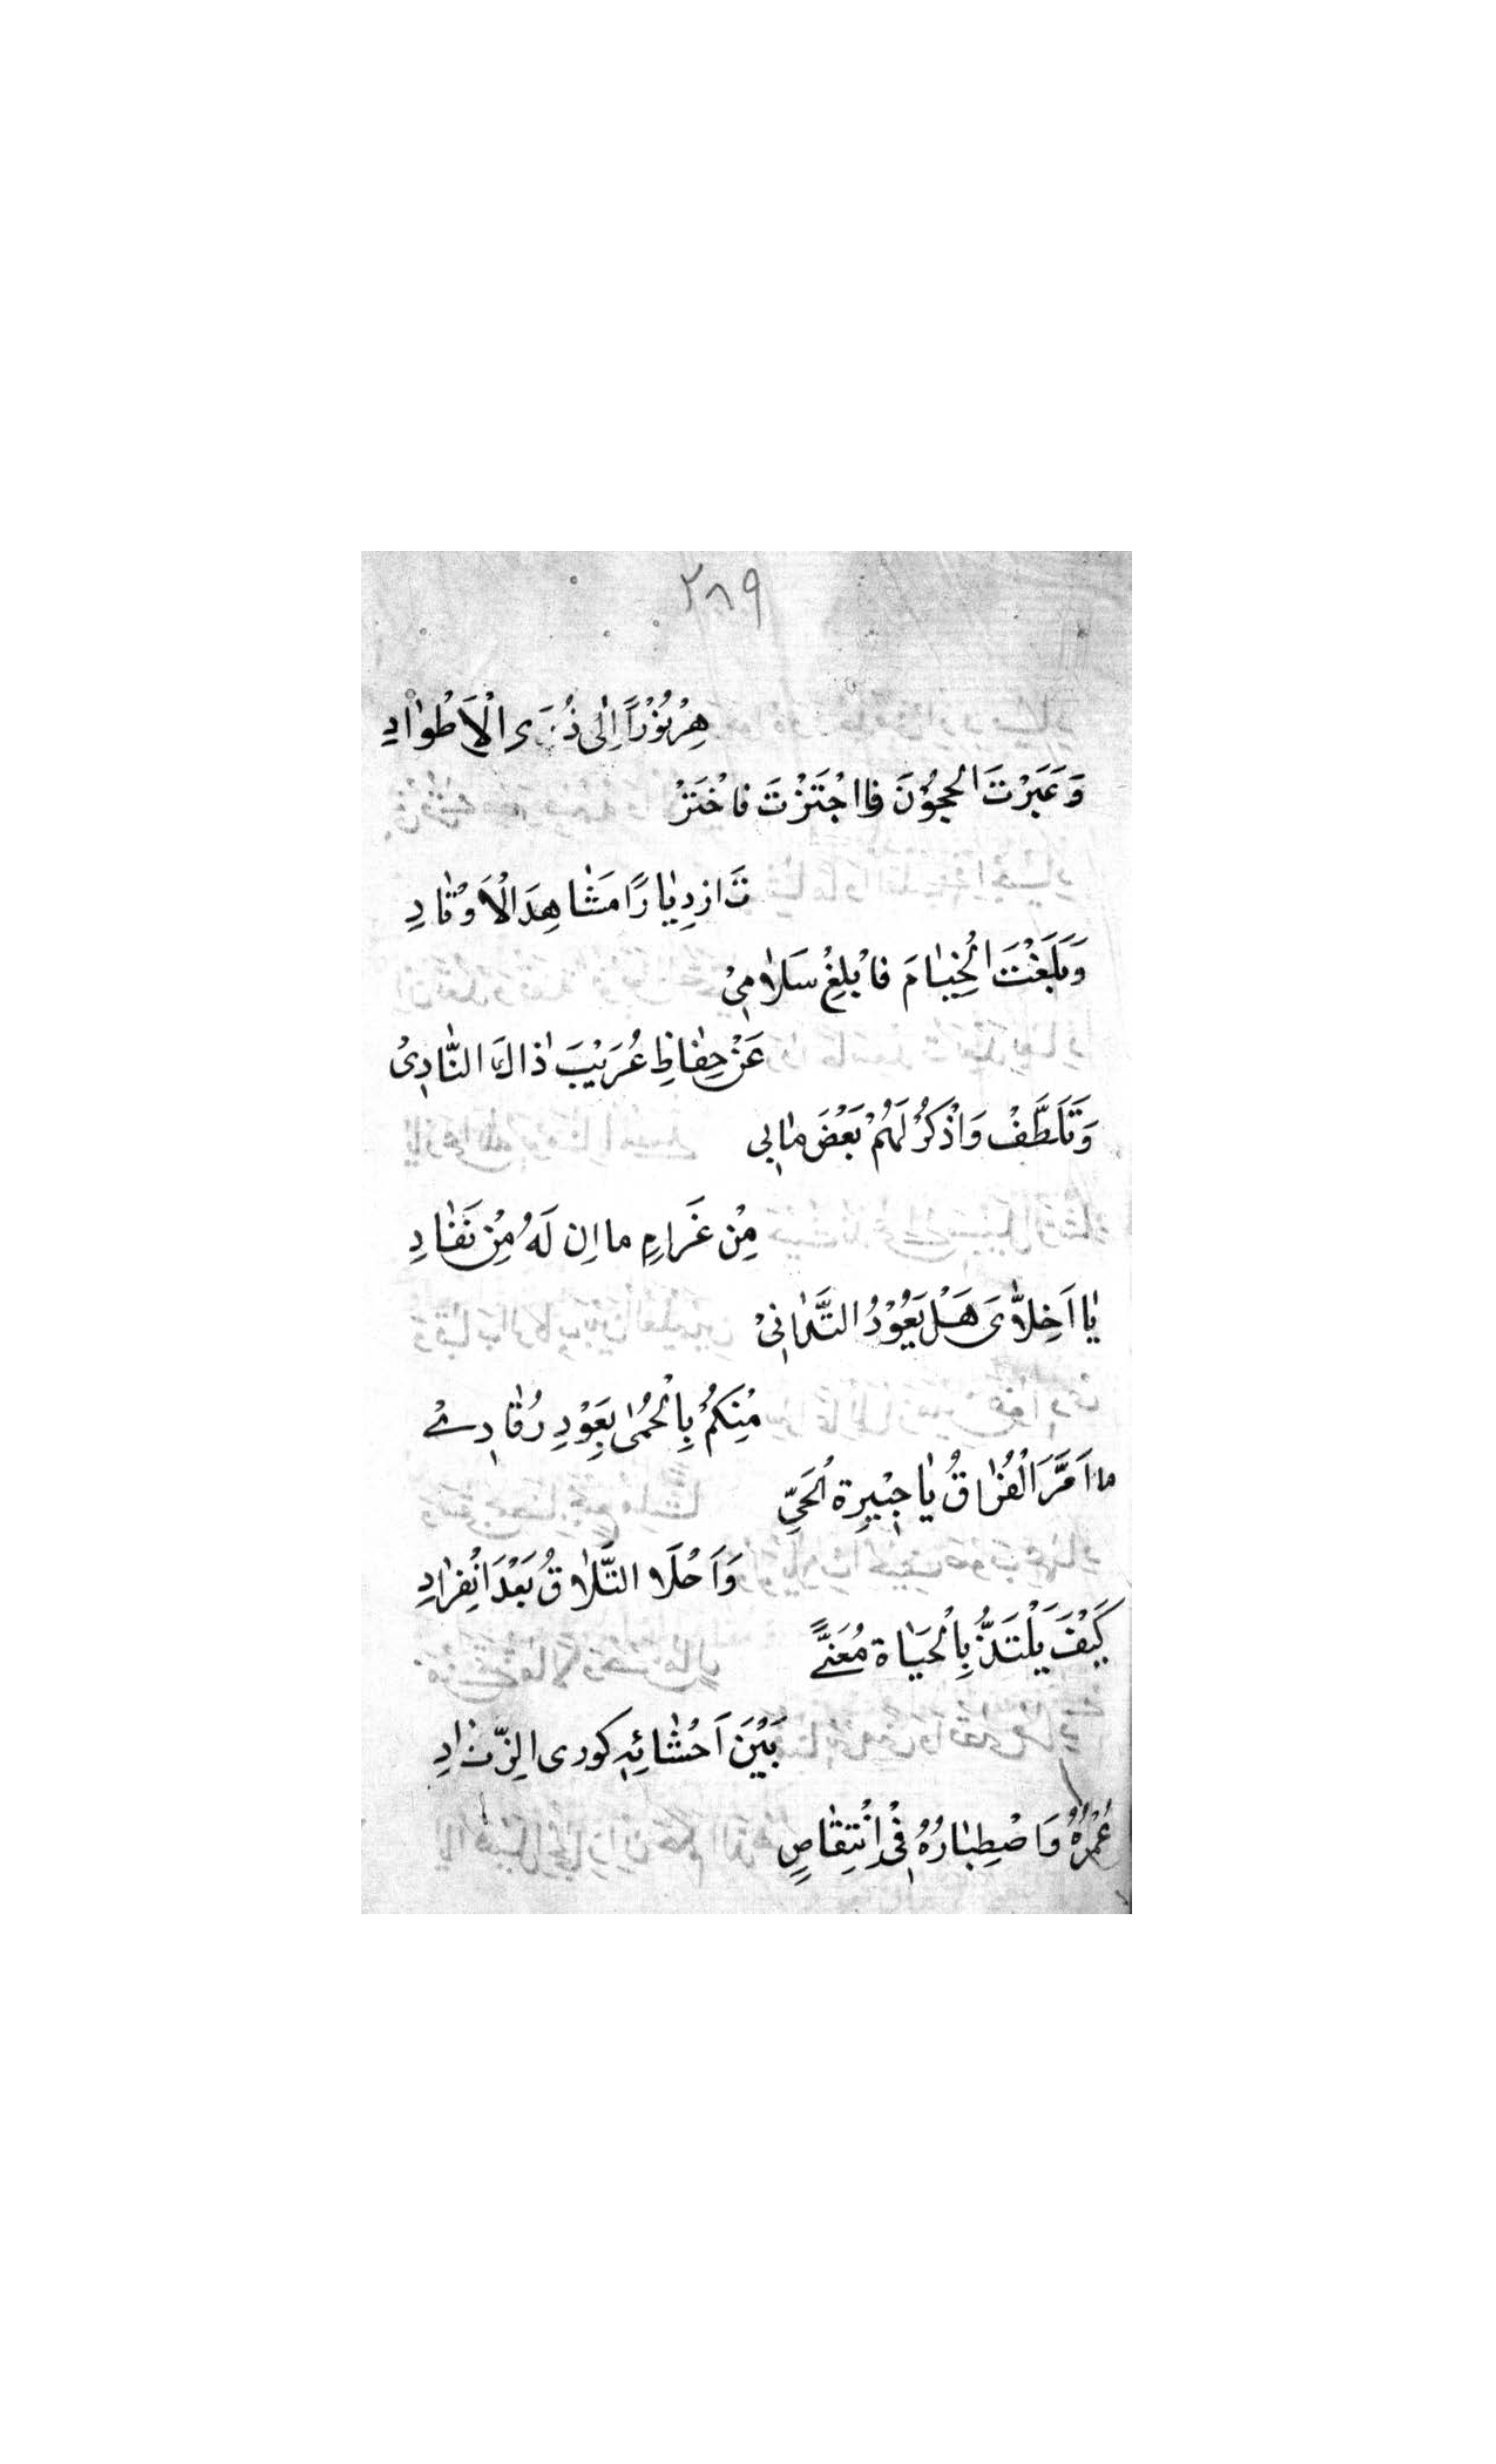 ٢٨٩
هِرْ نُوْرًا اِلٰى ذُرَى الْاَطْوٰادِ
وَعَبَرْتَ الْحجُوْنَ فَااجْتَزْتَ فَاخْتَرْ
تَ ازدِيٰارًا مَشٰاهِدَ الْاَوْتٰادِ
وَبَلَغْتَ الْخِيٰامَ فَابْلِغْ سَلٰامِىْ
عَنْ حِفٰاظٍ عُرَيْبَ ذٰاكَ النّٰادِىْ
وَتَلَطَّفْ وَاذْكُرْ لَهُمْ بَعْضَ مٰابِى
مِنْ غَرٰامٍ ما اِن لَهُ مِنْ نَفٰادِ
يٰا اَخِلّٰاىَ هَلْ يَعُوْدُ التَّدٰانِىْ
مِنْكُمْ بِالْحُمٰى بِعَوْدِ رُقٰادِىْ
ما اَمَرَّ الْفُرٰاقُ يٰا جِيْرِة الْحَىِّ
وَاَحْلَا التَّلٰاقُ بَعْدَ انْفِرٰادِ
كَيْفَ يَلْتَذُّ بِالْحَيٰاة مُعَنًّى
بَيْنَ اَحْشٰائِهِ كورى الزِّنٰادِ
عُمْرُهُ وَاصْطِبٰارُهُ فِى انْتِقٰاصٍ